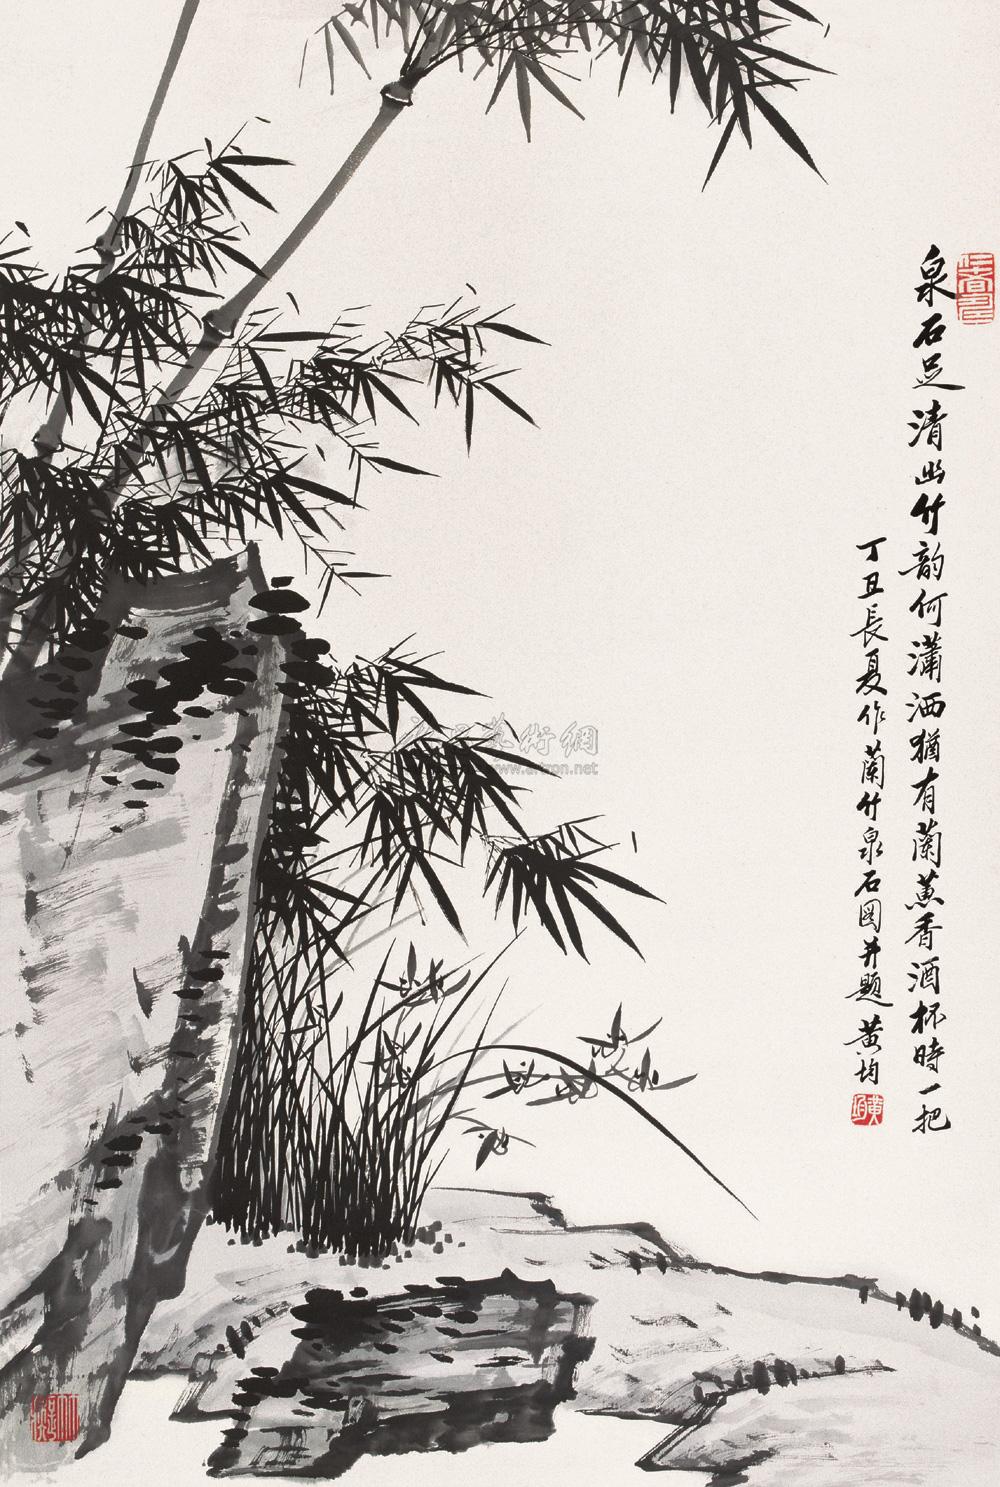 泉石足清幽竹韵何瀟洒猶有蘭蕙香酒杯時一把
丁丑長夏作蘭竹泉石図并題黄均
黄均
術網
www.artron.net